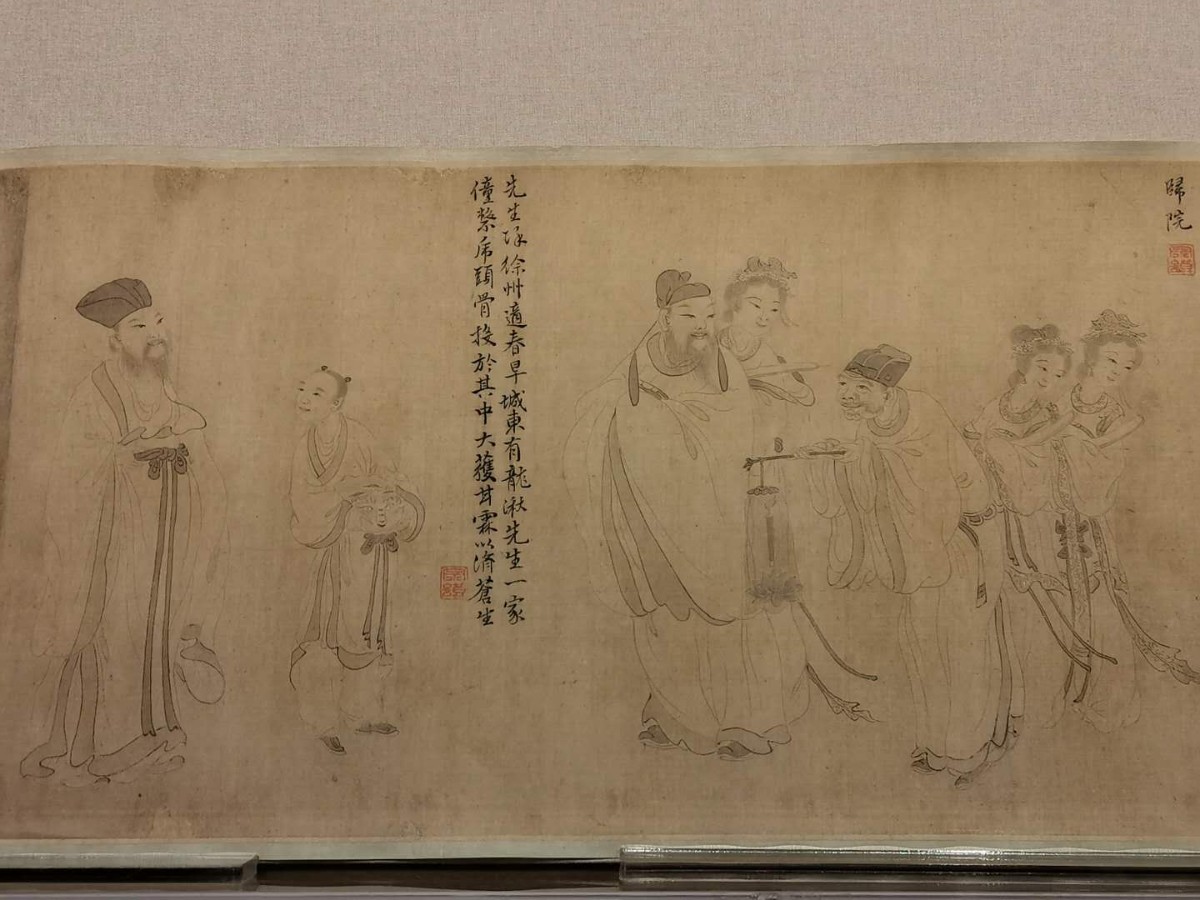 歸院
先生徐州適春旱城東有龍湫先生一家
僮繫虎頭骨投於其中大獲甘霖以濟蒼生